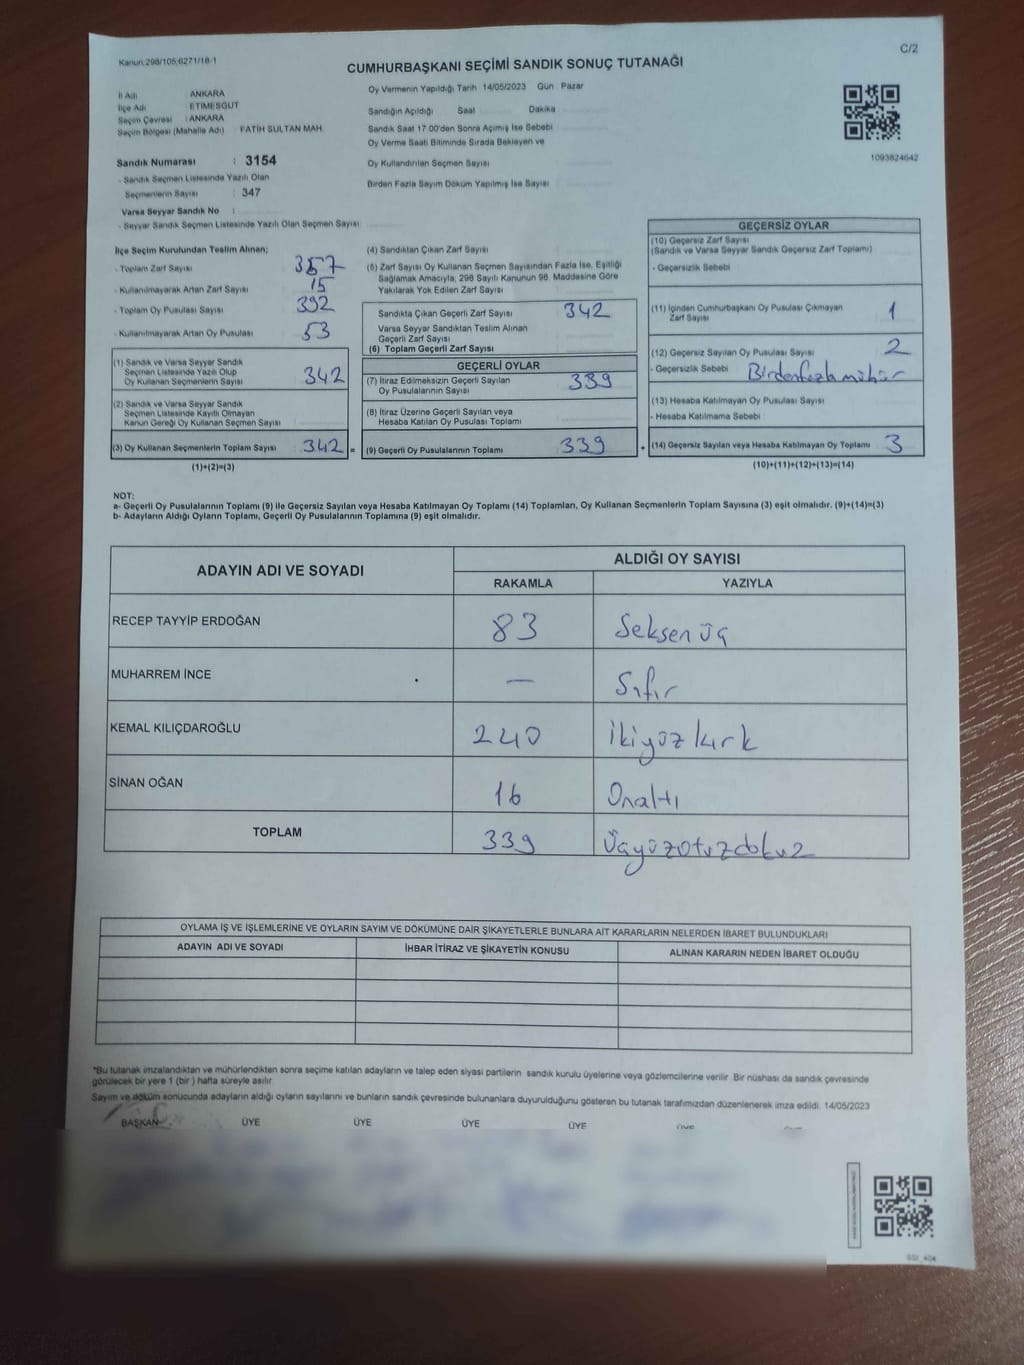 Kanun 298/105,6271/18-1
C/2
CUMHURBAŞKANI SEÇİMİ SANDIK SONUÇ TUTANAĞI
İl Adı ANKARA
İlçe Adı ETİMESGUT
Seçim Çevresi : ANKARA
Seçim Bölgesi (Mahalle Adı) : FATİH SULTAN MAH.
Sandık Numarası : 3154
- Sandık Seçmen Listesinde Yazılı Olan
Seçmenlerin Sayısı : 347
Varsa Seyyar Sandık No :
- Seyyar Sandık Seçmen Listesinde Yazılı Olan Seçmen Sayısı
Oy Vermenin Yapıldığı Tarih 14/05/2023 Gün Pazar
Sandığın Açıldığı Saat Dakika
Sandık Saat 17.00'den Sonra Açılmış İse Sebebi
Oy Verme Saati Bitiminde Sırada Bekleyen ve
Oy Kullandırılan Seçmen Sayısı
Birden Fazla Sayım Döküm Yapılmış İse Sayısı
1093824642
İlçe Seçim Kurulundan Teslim Alınan;
- Toplam Zarf Sayısı 357
- Kullanılmayarak Artan Zarf Sayısı 15
- Toplam Oy Pusulası Sayısı 392
- Kullanılmayarak Artan Oy Pusulası 53
(1) Sandık ve Varsa Seyyar Sandık
Seçmen Listesinde Yazılı Olup
Oy Kullanan Seçmenlerin Sayısı 342
(2) Sandık ve Varsa Seyyar Sandık
Seçmen Listesinde Kayıtlı Olmayan
Kanun Gereği Oy Kullanan Seçmen Sayısı
(3) Oy Kullanan Seçmenlerin Toplam Sayısı 342 =
(1)+(2)=(3)
(4) Sandıktan Çıkan Zarf Sayısı
(5) Zarf Sayısı Oy Kullanan Seçmen Sayısından Fazla İse, Eşitliği
Sağlamak Amacıyla, 298 Sayılı Kanunun 98. Maddesine Göre
Yakılarak Yok Edilen Zarf Sayısı
Sandıkta Çıkan Geçerli Zarf Sayısı 342
Varsa Seyyar Sandıktan Teslim Alınan
Geçerli Zarf Sayısı
(6) Toplam Geçerli Zarf Sayısı
GEÇERLİ OYLAR
(7) İtiraz Edilmeksizin Geçerli Sayılan
Oy Pusulalarının Sayısı 339
(8) İtiraz Üzerine Geçerli Sayılan veya
Hesaba Katılan Oy Pusulası Toplamı
(9) Geçerli Oy Pusulalarının Toplamı 339 +
GEÇERSİZ OYLAR
(10) Geçersiz Zarf Sayısı
(Sandık ve Varsa Seyyar Sandık Geçersiz Zarf Toplamı)
- Geçersizlik Sebebi
(11) İçinden Cumhurbaşkanı Oy Pusulası Çıkmayan
Zarf Sayısı 1
(12) Geçersiz Sayılan Oy Pusulası Sayısı 2
- Geçersizlik Sebebi Birdenfazla mühür
(13) Hesaba Katılmayan Oy Pusulası Sayısı
- Hesaba Katılmama Sebebi
(14) Geçersiz Sayılan veya Hesaba Katılmayan Oy Toplamı 3
(10)+(11)+(12)+(13)=(14)
NOT:
a- Geçerli Oy Pusulalarının Toplamı (9) ile Geçersiz Sayılan veya Hesaba Katılmayan Oy Toplamı (14) Toplamları, Oy Kullanan Seçmenlerin Toplam Sayısına (3) eşit olmalıdır. (9)+(14)=(3)
b- Adayların Aldığı Oyların Toplamı, Geçerli Oy Pusulalarının Toplamına (9) eşit olmalıdır.
ADAYIN ADI VE SOYADI
ALDIĞI OY SAYISI
RAKAMLA YAZIYLA
RECEP TAYYİP ERDOĞAN 83 Seksen üç
MUHARREM İNCE — Sıfır
KEMAL KILIÇDAROĞLU 240 İkiyüz kırk
SİNAN OĞAN 16 Onaltı
TOPLAM 339 Üçyüzotuzdokuz
OYLAMA İŞ VE İŞLEMLERİNE VE OYLARIN SAYIM VE DÖKÜMÜNE DAİR ŞİKAYETLERLE BUNLARA AİT KARARLARIN NELERDEN İBARET BULUNDUKLARI
ADAYIN ADI VE SOYADI İHBAR İTİRAZ VE ŞİKAYETİN KONUSU ALINAN KARARIN NEDEN İBARET OLDUĞU
"Bu tutanak imzalandıktan ve mühürlendikten sonra seçime katılan adayların ve talep eden siyasi partilerin sandık kurulu üyelerine veya gözlemcilerine verilir. Bir nüshası da sandık çevresinde
görülecek bir yere 1 (bir) hafta süreyle asılır.
Sayım ve döküm sonucunda adayların aldığı oyların sayılarını ve bunların sandık çevresinde bulunanlara duyurulduğunu gösteren bu tutanak tarafımızdan düzenlenerek imza edildi. 14/05/2023
BAŞKAN ÜYE ÜYE ÜYE ÜYE